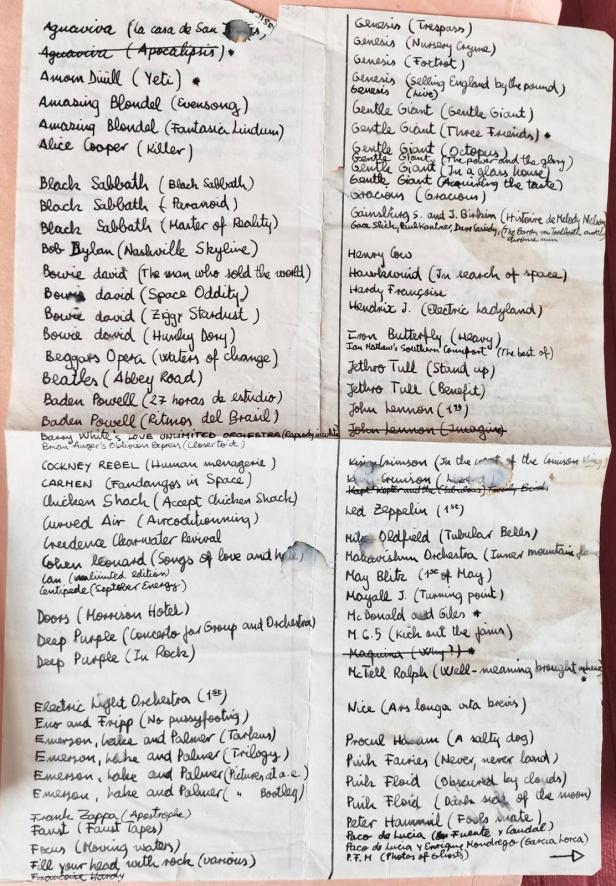 Aguaviva (La casa de San
Aguaviva (Apocalipsis) •
Amom Düüll (Yeti) •
Amazing Blondel (Evensong)
Amazing Blondel (Fantasia Lindum)
Alice Cooper (Killer)
Black Sabbath (Black Sabbath)
Black Sabbath (Paranoid)
Black Sabbath (Master of Reality)
Bob Dylan (Nashville Skyline)
Bowie david (The man who sold the world)
Bowie david (Space Oddity)
Bowie david (Ziggy Stardust)
Bowie david (Hunky Dory)
Beggars Opera (Waters of change)
Beatles (Abbey Road)
Baden Powell (27 horas de estudio)
Baden Powell (Ritmos del Brasil)
Barry White's LOVE UNLIMITED ORCHESTRA (Rapsody in white)
Brian Auger's Oblivion Express (Closer to it)
COCKNEY REBEL (Human menagerie)
CARMEN (Fandangos in Space)
Chicken Shack (Accept Chicken Shack)
Curved Air (Airconditionning)
Creedence Clearwater Revival
Cohen Leonard (Songs of love and hate)
Can (unlimited edition)
Centipede (September Energy)
Doors (Morrison Hotel)
Deep Purple (Concerto for Group and Orchestra)
Deep Purple (In Rock)
Electric Light Orchestra (1st)
Eno and Fripp (No pussyfooting)
Emerson, Lake and Palmer (Tarkus)
Emerson, Lake and Palmer (Trilogy)
Emerson, Lake and Palmer (Pictures at a. e.)
Emerson, Lake and Palmer ( " Bootleg)
Frank Zappa (Apostrophe)
Faust (Faust Tapes)
Focus (Moving waters)
Fill your head with rock (various)
Francoise Hardy
Genesis (Trespass)
Genesis (Nursery Cryme)
Genesis (Foxtrot)
Genesis (Selling England by the pound)
Genesis (Live)
Gentle Giant (Gentle Giant)
Gentle Giant (Three Friends) •
Gentle Giant (Octopus)
Gentle Giant (The power and the glory)
Gentle Giant (In a glass house)
Gentle Giant (Acquiring the taste)
Gracious (Gracious)
Gainsburg S. and J. Birkim (Histoire de Melody Nelson)
Grace Slick, Paul Kantner, Dave Freiberg, (The Baron von Tollbooth and the
chrome nun
Henry Cow
Hawkwind (In search of space)
Hardy Françoise
Hendrix J. (Electric Ladyland)
Iron Butterfly (Heavy)
Ian Mathew's Southern Comfort (The best of)
Jethro Tull (Stand up)
Jethro Tull (Benefit)
John Lennon (1st)
John Lennon (Imagine)
King Crimson (In the court of the Crimson King)
King Crimson
Led Zeppelin (1st)
Mike Oldfield (Tubular Bells)
Mahavishnu Orchestra (Inner mountain
May Blitz (1st of May)
Mayall J. (Turning point)
McDonald and Giles •
M.C.5 (Kick out the jams)
Maquina (Why?) •
McTell Ralph (Well-meaning brought
Nice (Ars longa vita brevis)
Procul Harum (A salty dog)
Pink Fairies (Never, never land)
Pink Floid (Obscured by clouds)
Pink Floid (Dark side of the moon)
Peter Hammil (Fools mate)
Paco de Lucia (En Fuente y Caudal)
Paco de Lucia y Enrique Mondrego (Garcia Lorca)
P.F.M (Photos of Ghosts)